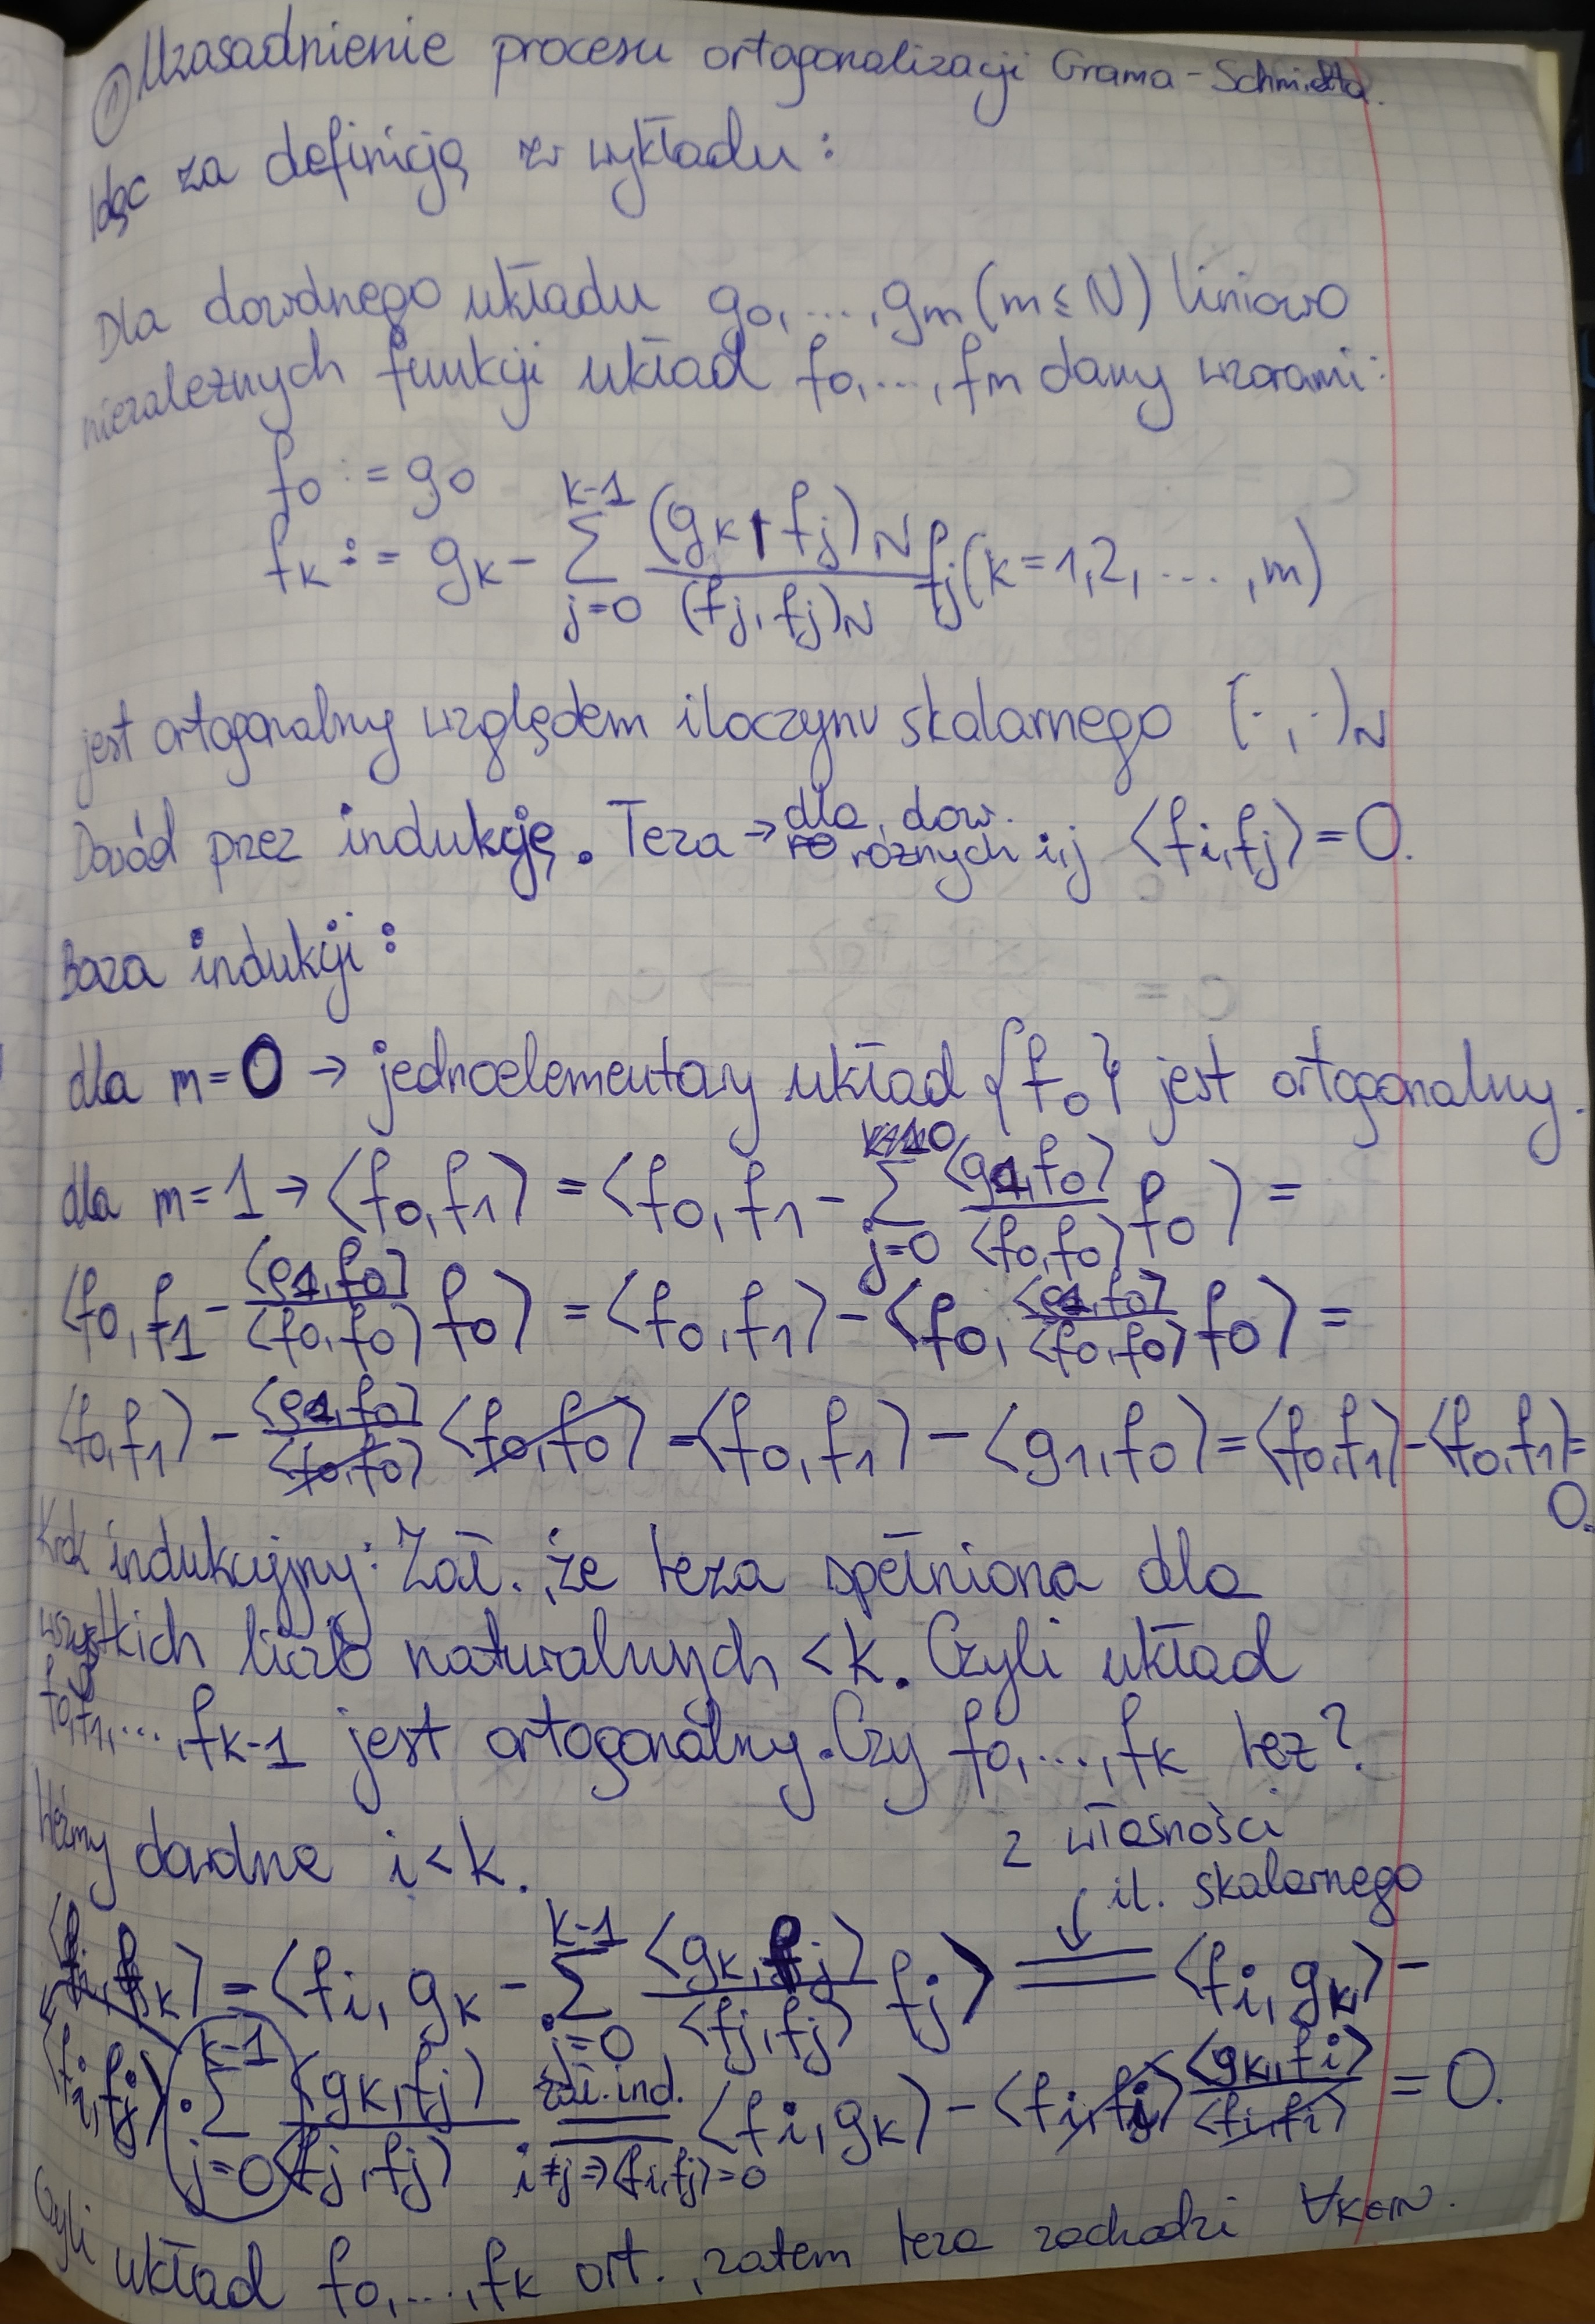 ① Uzasadnienie procesu ortogonalizacji Grama-Schmidta.
Idąc za definicją z wykładu:
Dla dowolnego układu g₀,...,gₘ (m≤N) liniowo
niezależnych funkcji układ f₀,...,fₘ dany wzorami:
f₀ := g₀
fₖ := gₖ - Σ_{j=0}^{k-1} (gₖ, fⱼ)_N / (fⱼ, fⱼ)_N fⱼ (k=1,2,...,m)
jest ortogonalny względem iloczynu skalarnego (·,·)_N
Dowód przez indukcję. Teza → dla dow. różnych i,j ⟨fᵢ,fⱼ⟩=0.
Baza indukcji:
dla m=0 → jednoelementowy układ {f₀} jest ortogonalny.
dla m=1 → ⟨f₀,f₁⟩ = ⟨f₀, f₁ - Σ_{j=0}^{0} ⟨g₁,f₀⟩/⟨f₀,f₀⟩ f₀⟩ =
⟨f₀, f₁ - ⟨g₁,f₀⟩/⟨f₀,f₀⟩ f₀⟩ = ⟨f₀,f₁⟩ - ⟨f₀, ⟨g₁,f₀⟩/⟨f₀,f₀⟩ f₀⟩ =
⟨f₀,f₁⟩ - ⟨g₁,f₀⟩/⟨f₀,f₀⟩ ⟨f₀,f₀⟩ = ⟨f₀,f₁⟩ - ⟨g₁,f₀⟩ = ⟨f₀,f₁⟩ - ⟨f₀,f₁⟩ =
0.
Krok indukcyjny: Zał., że teza spełniona dla
wszystkich liczb naturalnych <k. Czyli układ
f₀,f₁,...,fₖ₋₁ jest ortogonalny. Czy f₀,...,fₖ też?
Weźmy dowolne i<k.
z własności
il. skalarnego
⟨fᵢ,fₖ⟩ = ⟨fᵢ, gₖ - Σ_{j=0}^{k-1} ⟨gₖ,fⱼ⟩/⟨fⱼ,fⱼ⟩ fⱼ⟩ = ⟨fᵢ,gₖ⟩ -
⟨fᵢ,fⱼ⟩ · Σ_{j=0}^{k-1} ⟨gₖ,fⱼ⟩/⟨fⱼ,fⱼ⟩ = zał. ind. i≠j⇒⟨fᵢ,fⱼ⟩=0 ⟨fᵢ,gₖ⟩ - ⟨fᵢ,fᵢ⟩ ⟨gₖ,fᵢ⟩/⟨fᵢ,fᵢ⟩ = 0.
Czyli układ f₀,...,fₖ ort., zatem teza zachodzi ∀k∈ℕ.